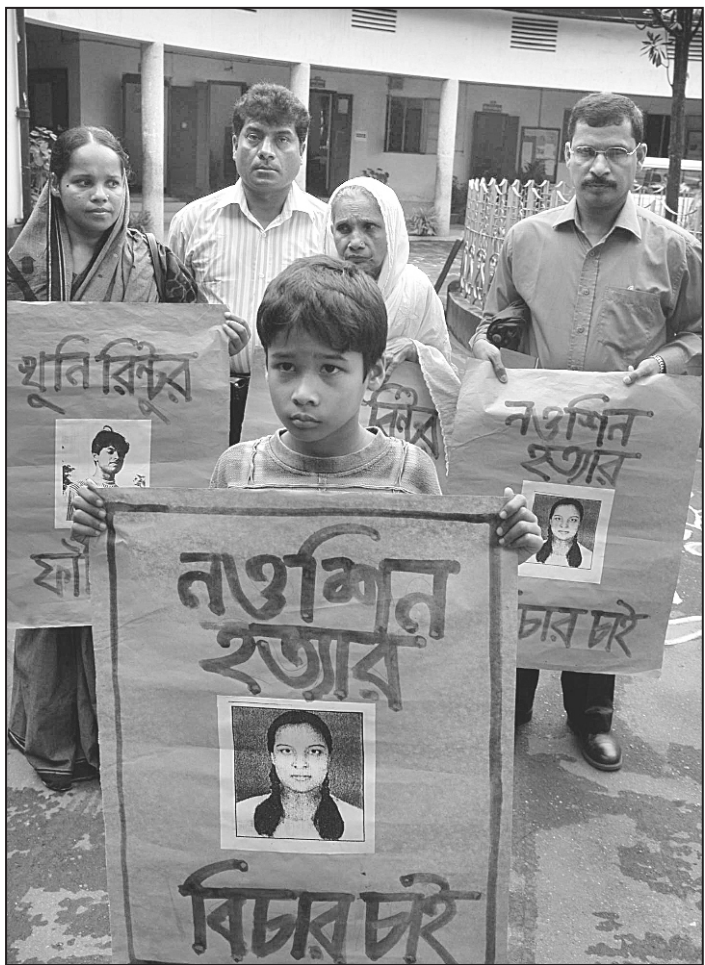 খুনি রিন্টুর
নওশিন
হত্যার
বিচার চাই
নওশিন
হত্যার
চার চাই